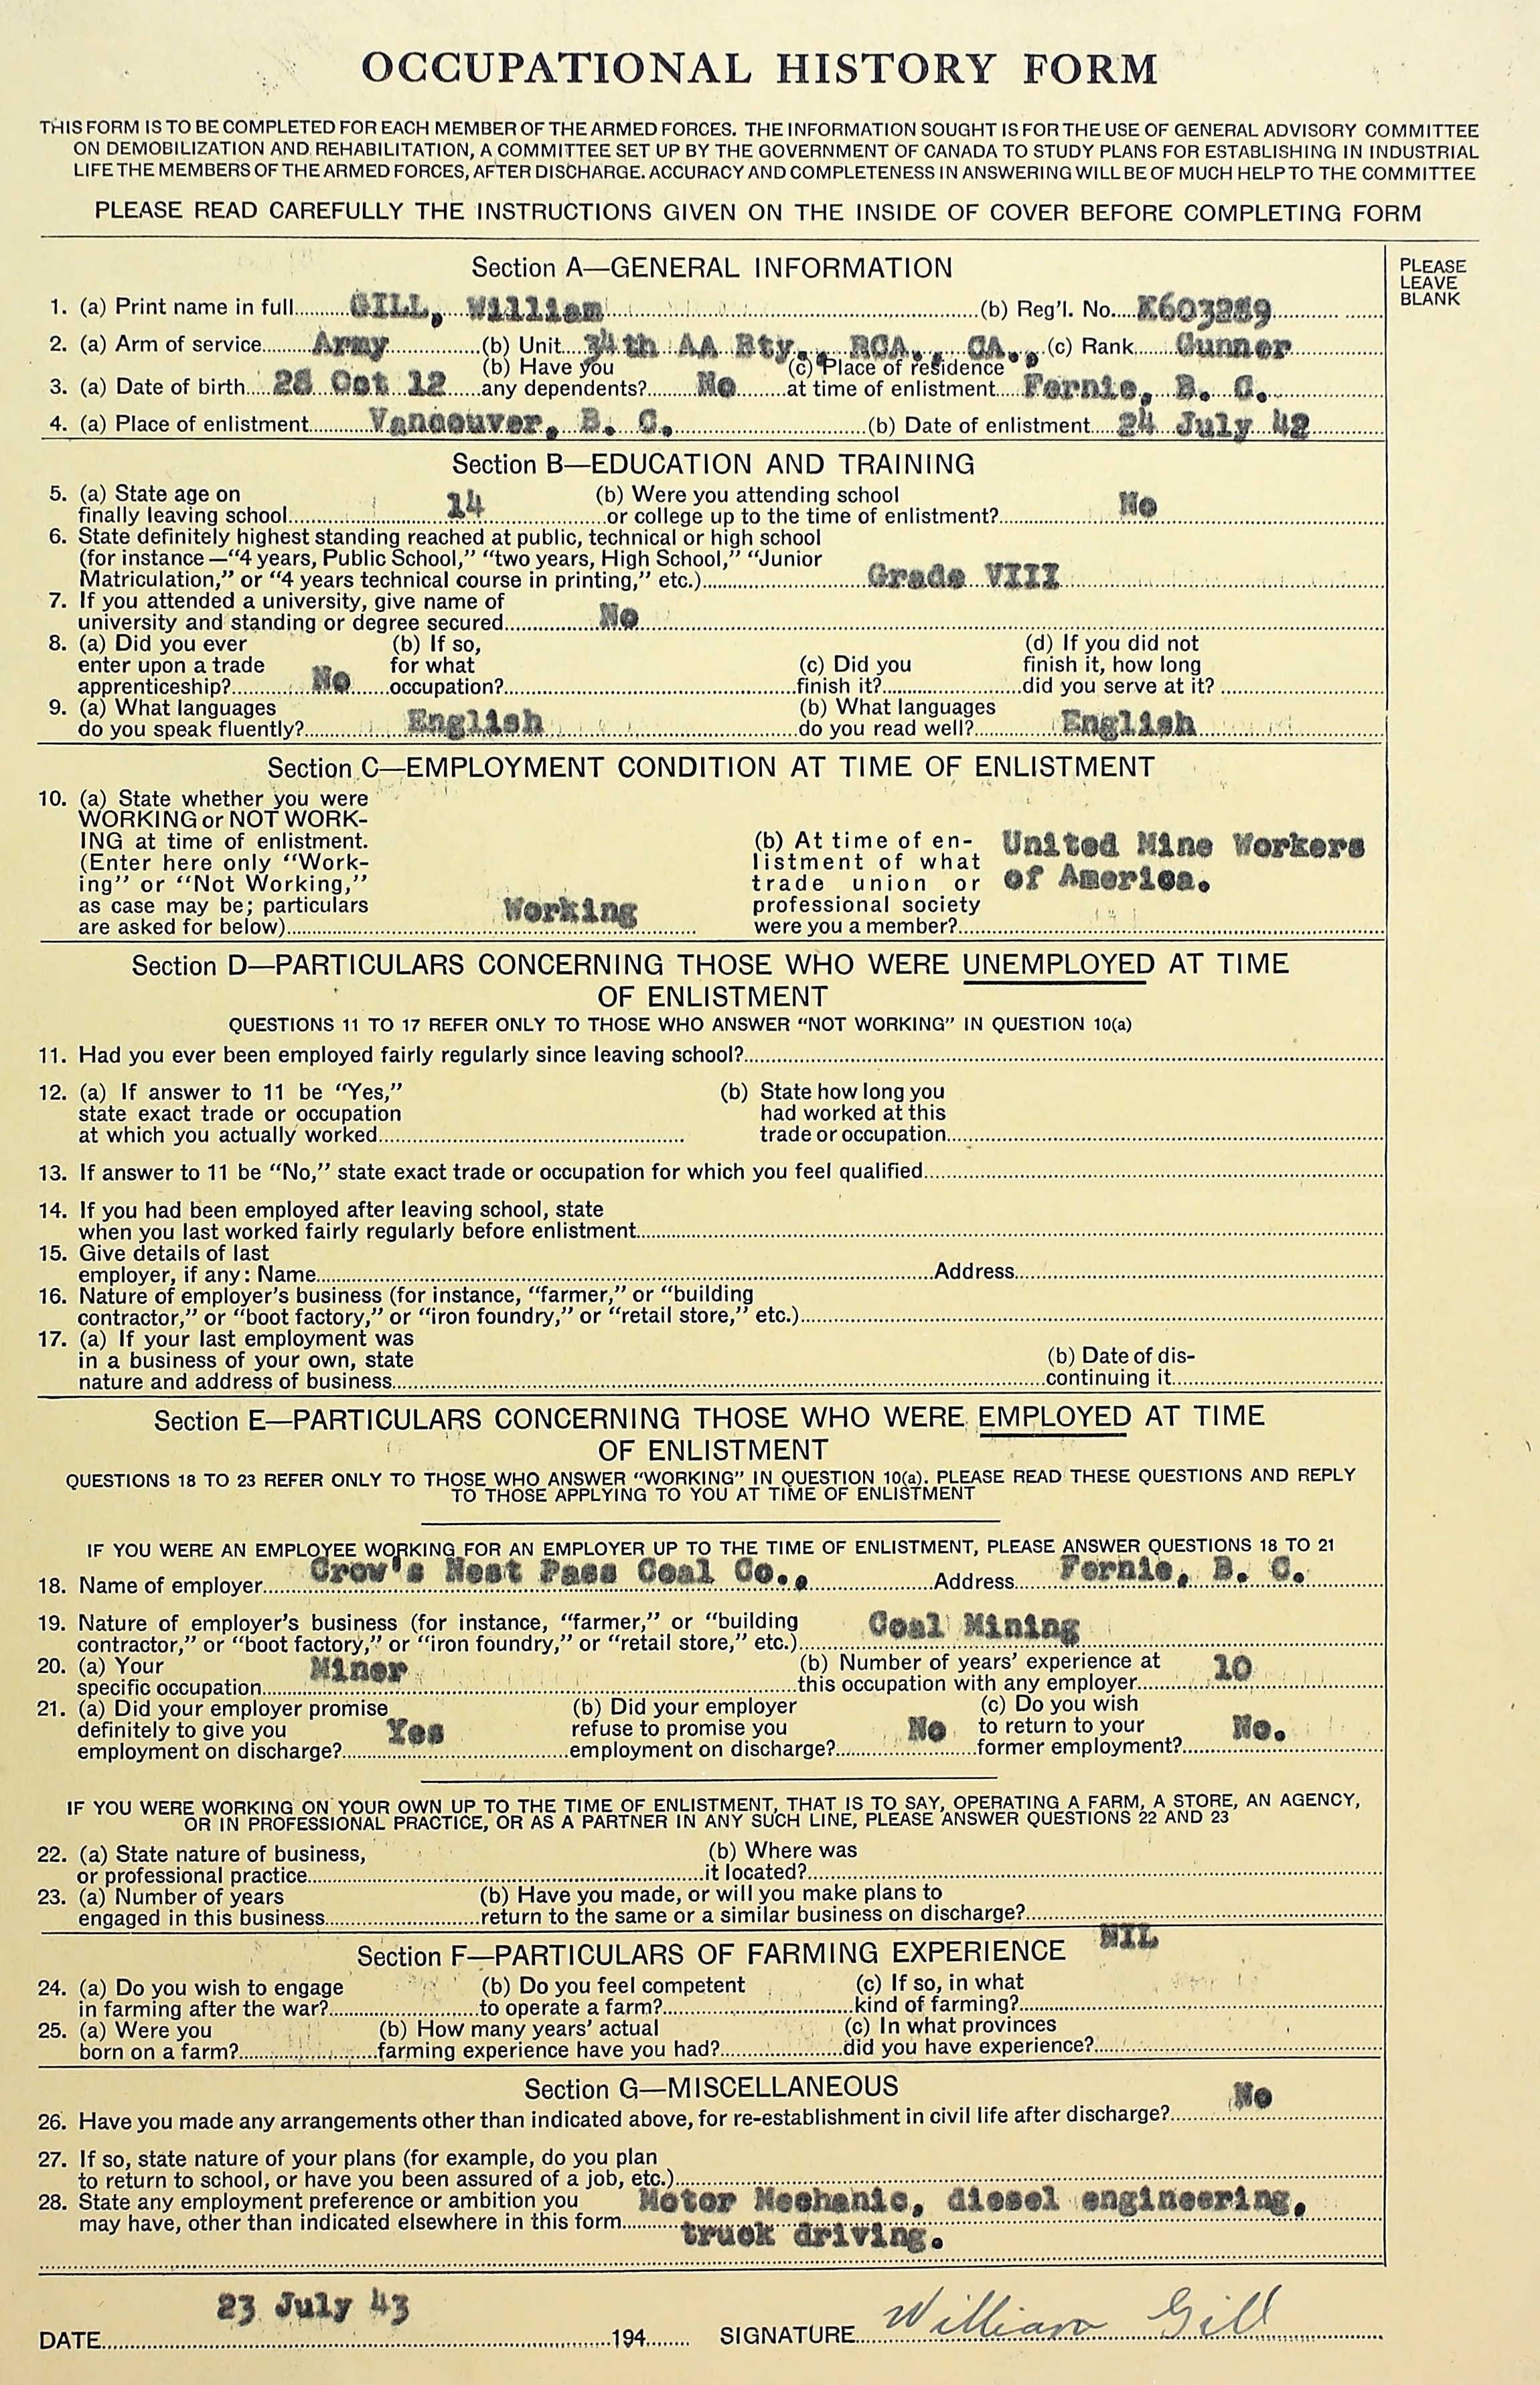 OCCUPATIONAL HISTORY FORM
THIS FORM IS TO BE COMPLETED FOR EACH MEMBER OF THE ARMED FORCES. THE INFORMATION SOUGHT IS FOR THE USE OF GENERAL ADVISORY COMMITTEE
ON DEMOBILIZATION AND REHABILITATION, A COMMITTEE SET UP BY THE GOVERNMENT OF CANADA TO STUDY PLANS FOR ESTABLISHING IN INDUSTRIAL
LIFE THE MEMBERS OF THE ARMED FORCES, AFTER DISCHARGE. ACCURACY AND COMPLETENESS IN ANSWERING WILL BE OF MUCH HELP TO THE COMMITTEE
PLEASE READ CAREFULLY THE INSTRUCTIONS GIVEN ON THE INSIDE OF COVER BEFORE COMPLETING FORM
PLEASE
LEAVE
BLANK
Section A—GENERAL INFORMATION
1. (a) Print name in full GILL, William (b) Reg'l. No. K603289
2. (a) Arm of service Army (b) Unit 34th AA Bty., RCA., CA., (c) Rank Gunner
3. (a) Date of birth 28 Oct 12 (b) Have you any dependents? No (c) Place of residence at time of enlistment Fernie, B. C.
4. (a) Place of enlistment Vancouver, B. C. (b) Date of enlistment 24 July 42
Section B—EDUCATION AND TRAINING
5. (a) State age on (b) Were you attending school
finally leaving school 14 or college up to the time of enlistment? No
6. State definitely highest standing reached at public, technical or high school
(for instance—"4 years, Public School," "two years, High School," "Junior
Matriculation," or "4 years technical course in printing," etc.) Grade VIII
7. If you attended a university, give name of
university and standing or degree secured No
8. (a) Did you ever (b) If so, (d) If you did not
enter upon a trade for what (c) Did you finish it, how long
apprenticeship? No occupation? finish it? did you serve at it?
9. (a) What languages (b) What languages
do you speak fluently? English do you read well? English
Section C—EMPLOYMENT CONDITION AT TIME OF ENLISTMENT
10. (a) State whether you were
WORKING or NOT WORK-
ING at time of enlistment.
(Enter here only "Work-
ing" or "Not Working,"
as case may be; particulars
are asked for below) Working
(b) At time of en-
listment of what
trade union or
professional society
were you a member? United Mine Workers
of America.
Section D—PARTICULARS CONCERNING THOSE WHO WERE UNEMPLOYED AT TIME
OF ENLISTMENT
QUESTIONS 11 TO 17 REFER ONLY TO THOSE WHO ANSWER "NOT WORKING" IN QUESTION 10(a)
11. Had you ever been employed fairly regularly since leaving school?
12. (a) If answer to 11 be "Yes," (b) State how long you
state exact trade or occupation had worked at this
at which you actually worked trade or occupation
13. If answer to 11 be "No," state exact trade or occupation for which you feel qualified
14. If you had been employed after leaving school, state
when you last worked fairly regularly before enlistment
15. Give details of last
employer, if any: Name Address
16. Nature of employer's business (for instance, "farmer," or "building
contractor," or "boot factory," or "iron foundry," or "retail store," etc.)
17. (a) If your last employment was
in a business of your own, state (b) Date of dis-
nature and address of business continuing it
Section E—PARTICULARS CONCERNING THOSE WHO WERE EMPLOYED AT TIME
OF ENLISTMENT
QUESTIONS 18 TO 23 REFER ONLY TO THOSE WHO ANSWER "WORKING" IN QUESTION 10(a). PLEASE READ THESE QUESTIONS AND REPLY
TO THOSE APPLYING TO YOU AT TIME OF ENLISTMENT
IF YOU WERE AN EMPLOYEE WORKING FOR AN EMPLOYER UP TO THE TIME OF ENLISTMENT, PLEASE ANSWER QUESTIONS 18 TO 21
18. Name of employer Crow's Nest Pass Coal Co., Address Fernie, B. C.
19. Nature of employer's business (for instance, "farmer," or "building
contractor," or "boot factory," or "iron foundry," or "retail store," etc.) Coal Mining
20. (a) Your (b) Number of years' experience at
specific occupation Miner this occupation with any employer 10
21. (a) Did your employer promise (b) Did your employer (c) Do you wish
definitely to give you Yes refuse to promise you No to return to your No.
employment on discharge? employment on discharge? former employment?
IF YOU WERE WORKING ON YOUR OWN UP TO THE TIME OF ENLISTMENT, THAT IS TO SAY, OPERATING A FARM, A STORE, AN AGENCY,
OR IN PROFESSIONAL PRACTICE, OR AS A PARTNER IN ANY SUCH LINE, PLEASE ANSWER QUESTIONS 22 AND 23
22. (a) State nature of business, (b) Where was
or professional practice it located?
23. (a) Number of years (b) Have you made, or will you make plans to
engaged in this business return to the same or a similar business on discharge?
Section F—PARTICULARS OF FARMING EXPERIENCE NIL
24. (a) Do you wish to engage (b) Do you feel competent (c) If so, in what
in farming after the war? to operate a farm? kind of farming?
25. (a) Were you (b) How many years' actual (c) In what provinces
born on a farm? farming experience have you had? did you have experience?
Section G—MISCELLANEOUS
26. Have you made any arrangements other than indicated above, for re-establishment in civil life after discharge? No
27. If so, state nature of your plans (for example, do you plan
to return to school, or have you been assured of a job, etc.)
28. State any employment preference or ambition you Motor Mechanic, diesel engineering,
may have, other than indicated elsewhere in this form truck driving.
23 July 43
DATE 194 SIGNATURE William Gill